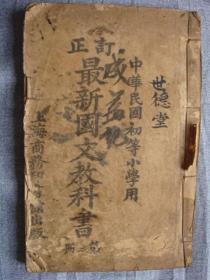 世德堂
中華民國初等小學用
訂正
最新國文教科書
上海商務印書館出版